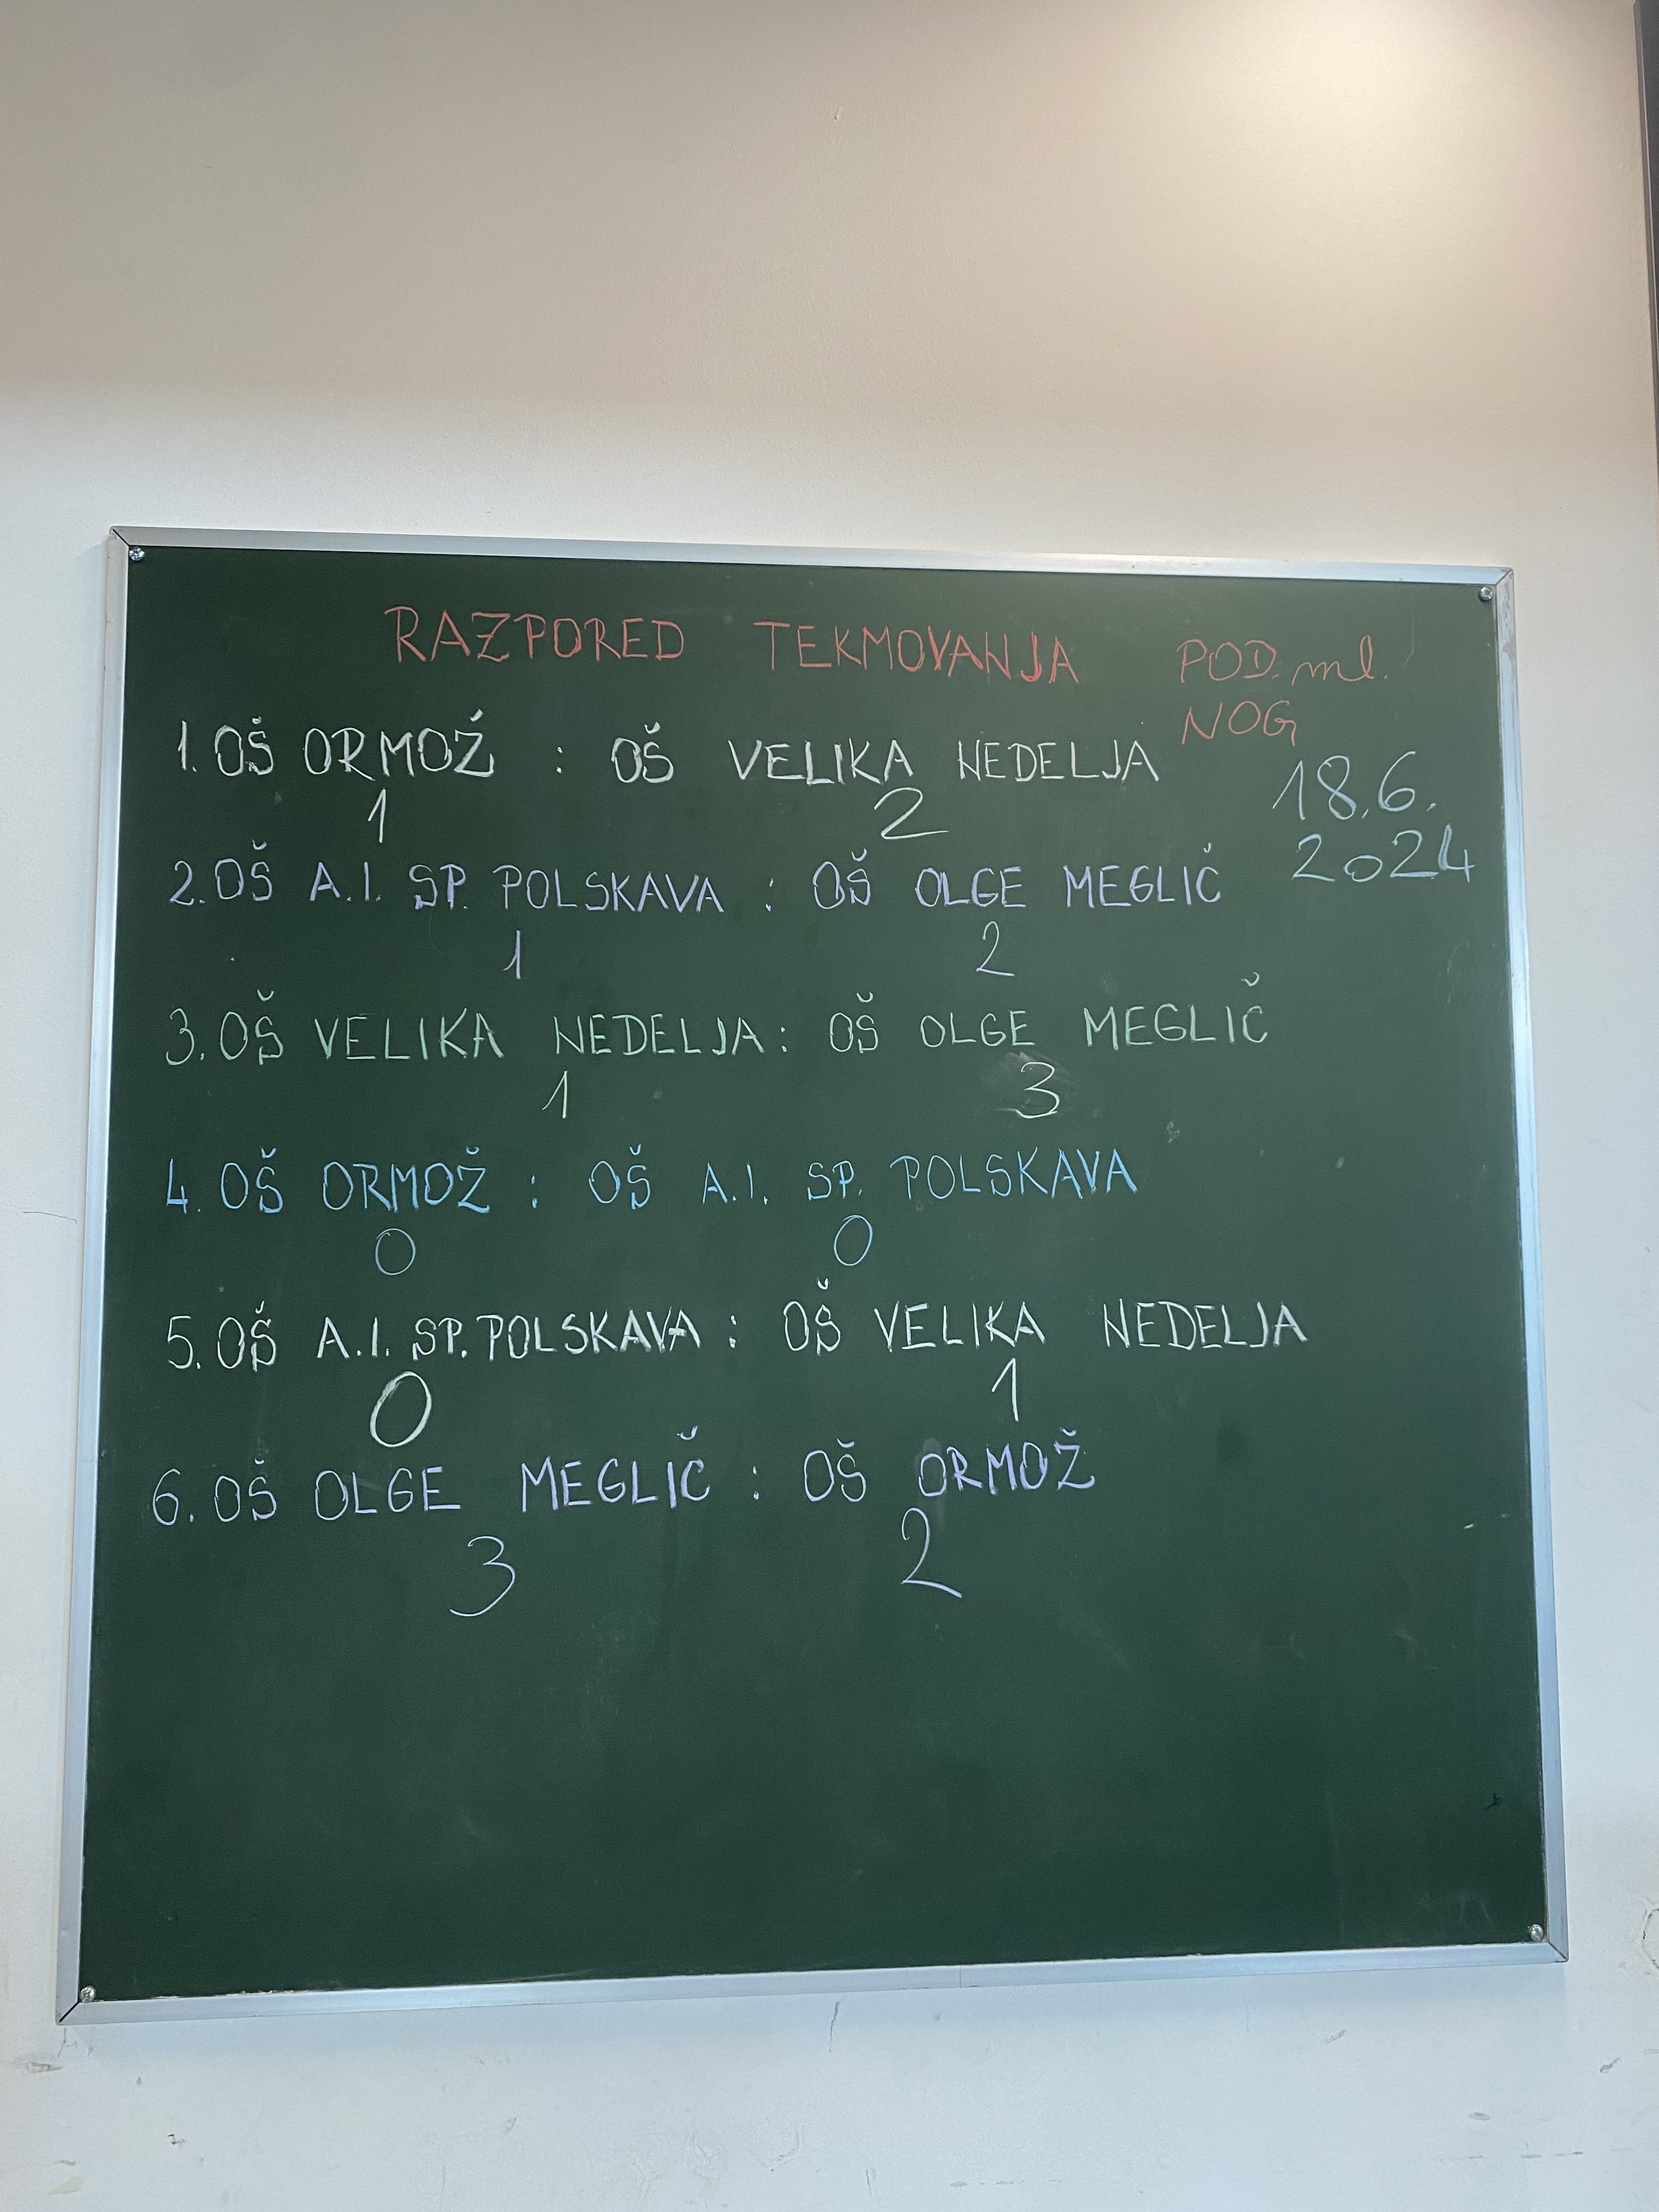 RAZPORED TEKMOVANJA POD. ml.
NOG
1. OŠ ORMOŽ : OŠ VELIKA NEDELJA
18.6.
1 2
2024
2. OŠ A.I. SP. POLSKAVA : OŠ OLGE MEGLIČ
1 2
3. OŠ VELIKA NEDELJA : OŠ OLGE MEGLIČ
1 3
4. OŠ ORMOŽ : OŠ A.I. SP. POLSKAVA
0 0
5. OŠ A.I. SP. POLSKAVA : OŠ VELIKA NEDELJA
0 1
6. OŠ OLGE MEGLIČ : OŠ ORMOŽ
3 2